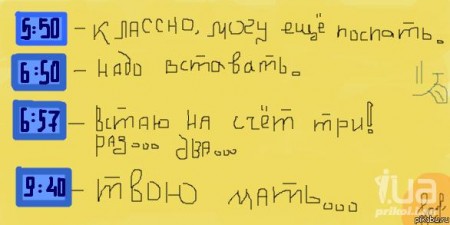 5:50 - классно, могу ещё поспать.
6:50 - надо вставать.
6:57 - встаю на счёт три!
раз... два...
9:40 - твою мать...
i.ua
prikol.i.ua
pikabu.ru